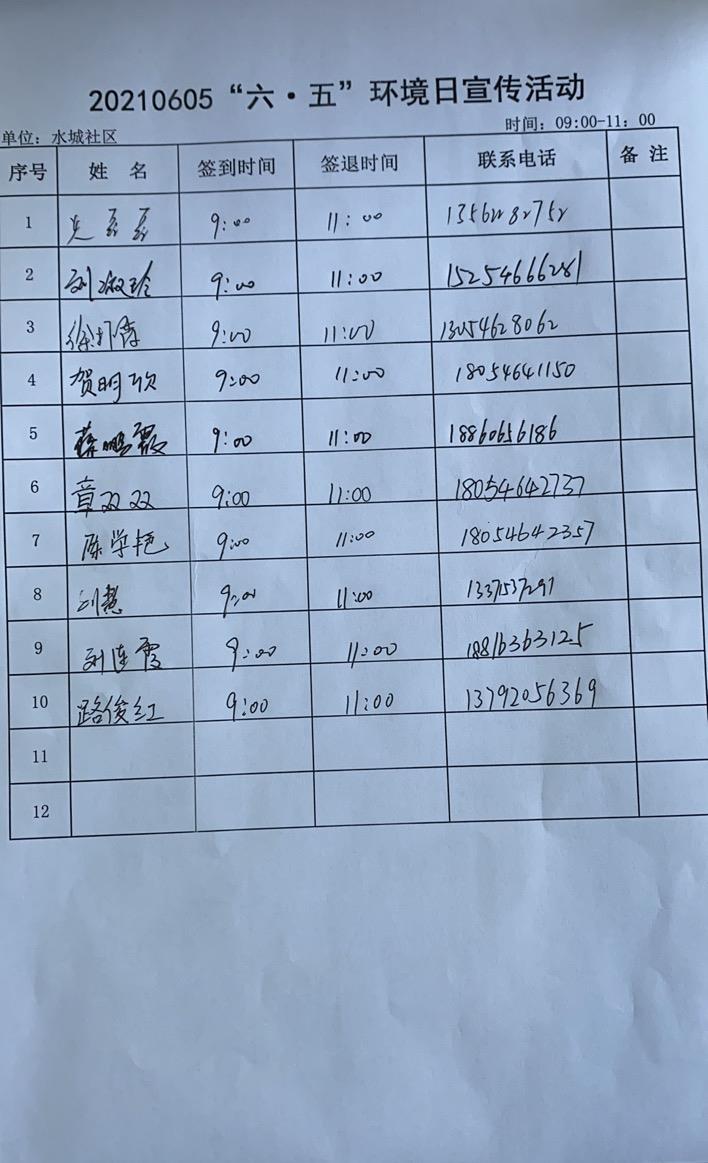 20210605“六·五”环境日宣传活动
单位：水城社区 时间：09:00-11：00
序号 姓 名 签到时间 签退时间 联系电话 备 注
1 9:00 11:00
2 刘淑玲 9:00 11:00 15254666281
3 9:00 11:00 13054628062
4 贺明欣 9:00 11:00 18054641150
5 9:00 11:00 18860656186
6 章双双 9:00 11:00 18054642737
7 陈学艳 9:00 11:00 18054642357
8 刘慧 9:00 11:00 13371537291
9 刘连霞 9:00 11:00 18816363125
10 路俊红 9:00 11:00 13792056369
11
12